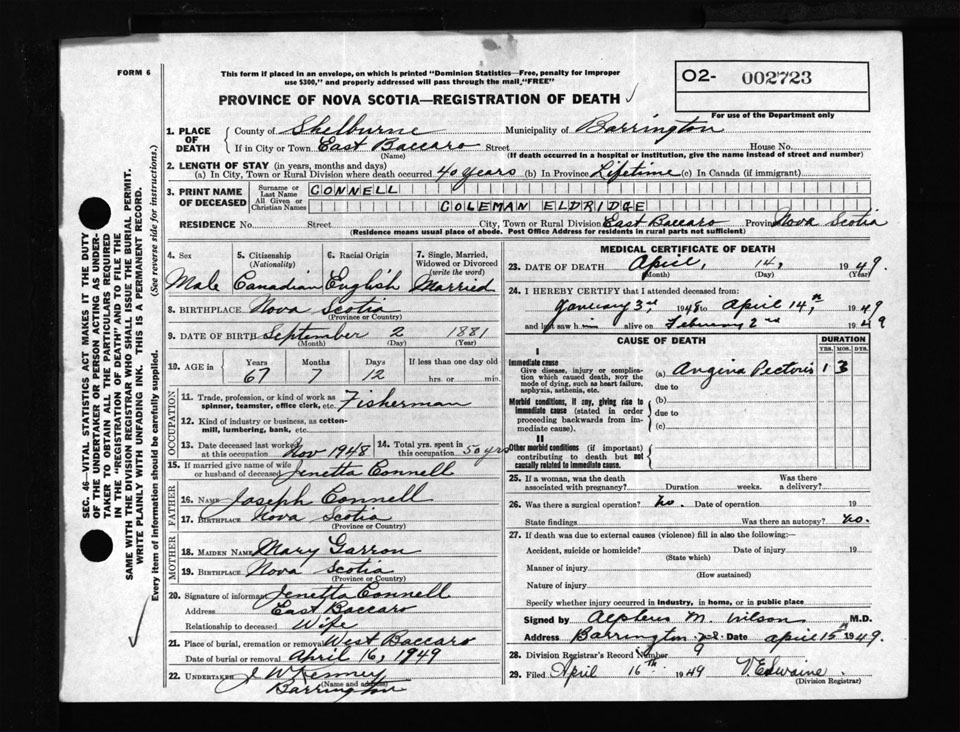 FORM 6
This form if placed in an envelope, on which is printed "Dominion Statistics—Free, penalty for improper
use $300," and properly addressed will pass through the mail, "FREE"
O2- 002723
PROVINCE OF NOVA SCOTIA—REGISTRATION OF DEATH
For use of the Department only
1. PLACE OF DEATH
County of Shelburne Municipality of Barrington
If in City or Town East Baccaro Street House No.
(Name) (If death occurred in a hospital or institution, give the name instead of street and number)
2. LENGTH OF STAY (in years, months and days)
(a) In City, Town or Rural Division where death occurred 40 years (b) In Province Lifetime (c) In Canada (if immigrant)
3. PRINT NAME OF DECEASED
Surname or Last Name CONNELL
All Given or Christian Names COLEMAN ELDRIDGE
RESIDENCE No. Street City, Town or Rural Division East Baccaro Province Nova Scotia
(Residence means usual place of abode. Post Office Address for residents in rural parts not sufficient)
4. Sex
Male
5. Citizenship (Nationality)
Canadian
6. Racial Origin
English
7. Single, Married, Widowed or Divorced (write the word)
Married
8. BIRTHPLACE Nova Scotia
(Province or Country)
9. DATE OF BIRTH September 2 1881
(Month) (Day) (Year)
10. AGE in
Years Months Days If less than one day old
67 7 12 hrs. or min.
OCCUPATION
11. Trade, profession, or kind of work as Fisherman
spinner, teamster, office clerk, etc.
12. Kind of industry or business, as cotton-
mill, lumbering, bank, etc.
13. Date deceased last worked at this occupation Nov 1948
14. Total yrs. spent in this occupation 50 yrs
15. If married give name of wife or husband of deceased Jenetta Connell
FATHER
16. NAME Joseph Connell
17. BIRTHPLACE Nova Scotia
(Province or Country)
MOTHER
18. MAIDEN NAME Mary Garron
19. BIRTHPLACE Nova Scotia
(Province or Country)
20. Signature of informant Jenetta Connell
Address East Baccaro
Relationship to deceased Wife
21. Place of burial, cremation or removal West Baccaro
Date of burial or removal April 16, 1949
22. UNDERTAKER J W Kenney
(Name and address)
Barrington
MEDICAL CERTIFICATE OF DEATH
23. DATE OF DEATH April, 14, 1949.
(Month) (Day) (Year)
24. I HEREBY CERTIFY that I attended deceased from:
January 3rd, 1948 to April 14,th 1949
and last saw him alive on February 2nd 1949
CAUSE OF DEATH
DURATION
YRS. MOS. DYS.
I
Immediate cause
Give disease, injury or complication which caused death, NOT the mode of dying, such as heart failure, asphyxia, asthenia, etc.
(a) Angina Pectoris 1 3
due to
Morbid conditions, if any, giving rise to immediate cause (stated in order proceeding backwards from immediate cause).
(b)
due to
(c)
II
Other morbid conditions (if important) contributing to death but not causally related to immediate cause.
25. If a woman, was the death associated with pregnancy? Duration weeks. Was there a delivery?
26. Was there a surgical operation? No. Date of operation 19
State findings Was there an autopsy? No.
27. If death was due to external causes (violence) fill in also the following:—
Accident, suicide or homicide? Date of injury 19
(State which)
Manner of injury
(How sustained)
Nature of injury
Specify whether injury occurred in industry, in home, or in public place
Signed by Alpheus M. Wilson M.D.
Address Barrington N.S. Date April 15th 1949.
28. Division Registrar's Record Number 9
29. Filed April 16th 1949
(Division Registrar)
SEC. 46—VITAL STATISTICS ACT MAKES IT THE DUTY
OF THE UNDERTAKER OR PERSON ACTING AS UNDER-
TAKER TO OBTAIN ALL THE PARTICULARS REQUIRED
IN THE "REGISTRATION OF DEATH" AND TO FILE THE
SAME WITH THE DIVISION REGISTRAR WHO SHALL ISSUE THE BURIAL PERMIT.
WRITE PLAINLY WITH UNFADING INK. THIS IS A PERMANENT RECORD.
Every item of information should be carefully supplied. (See reverse side for instructions.)